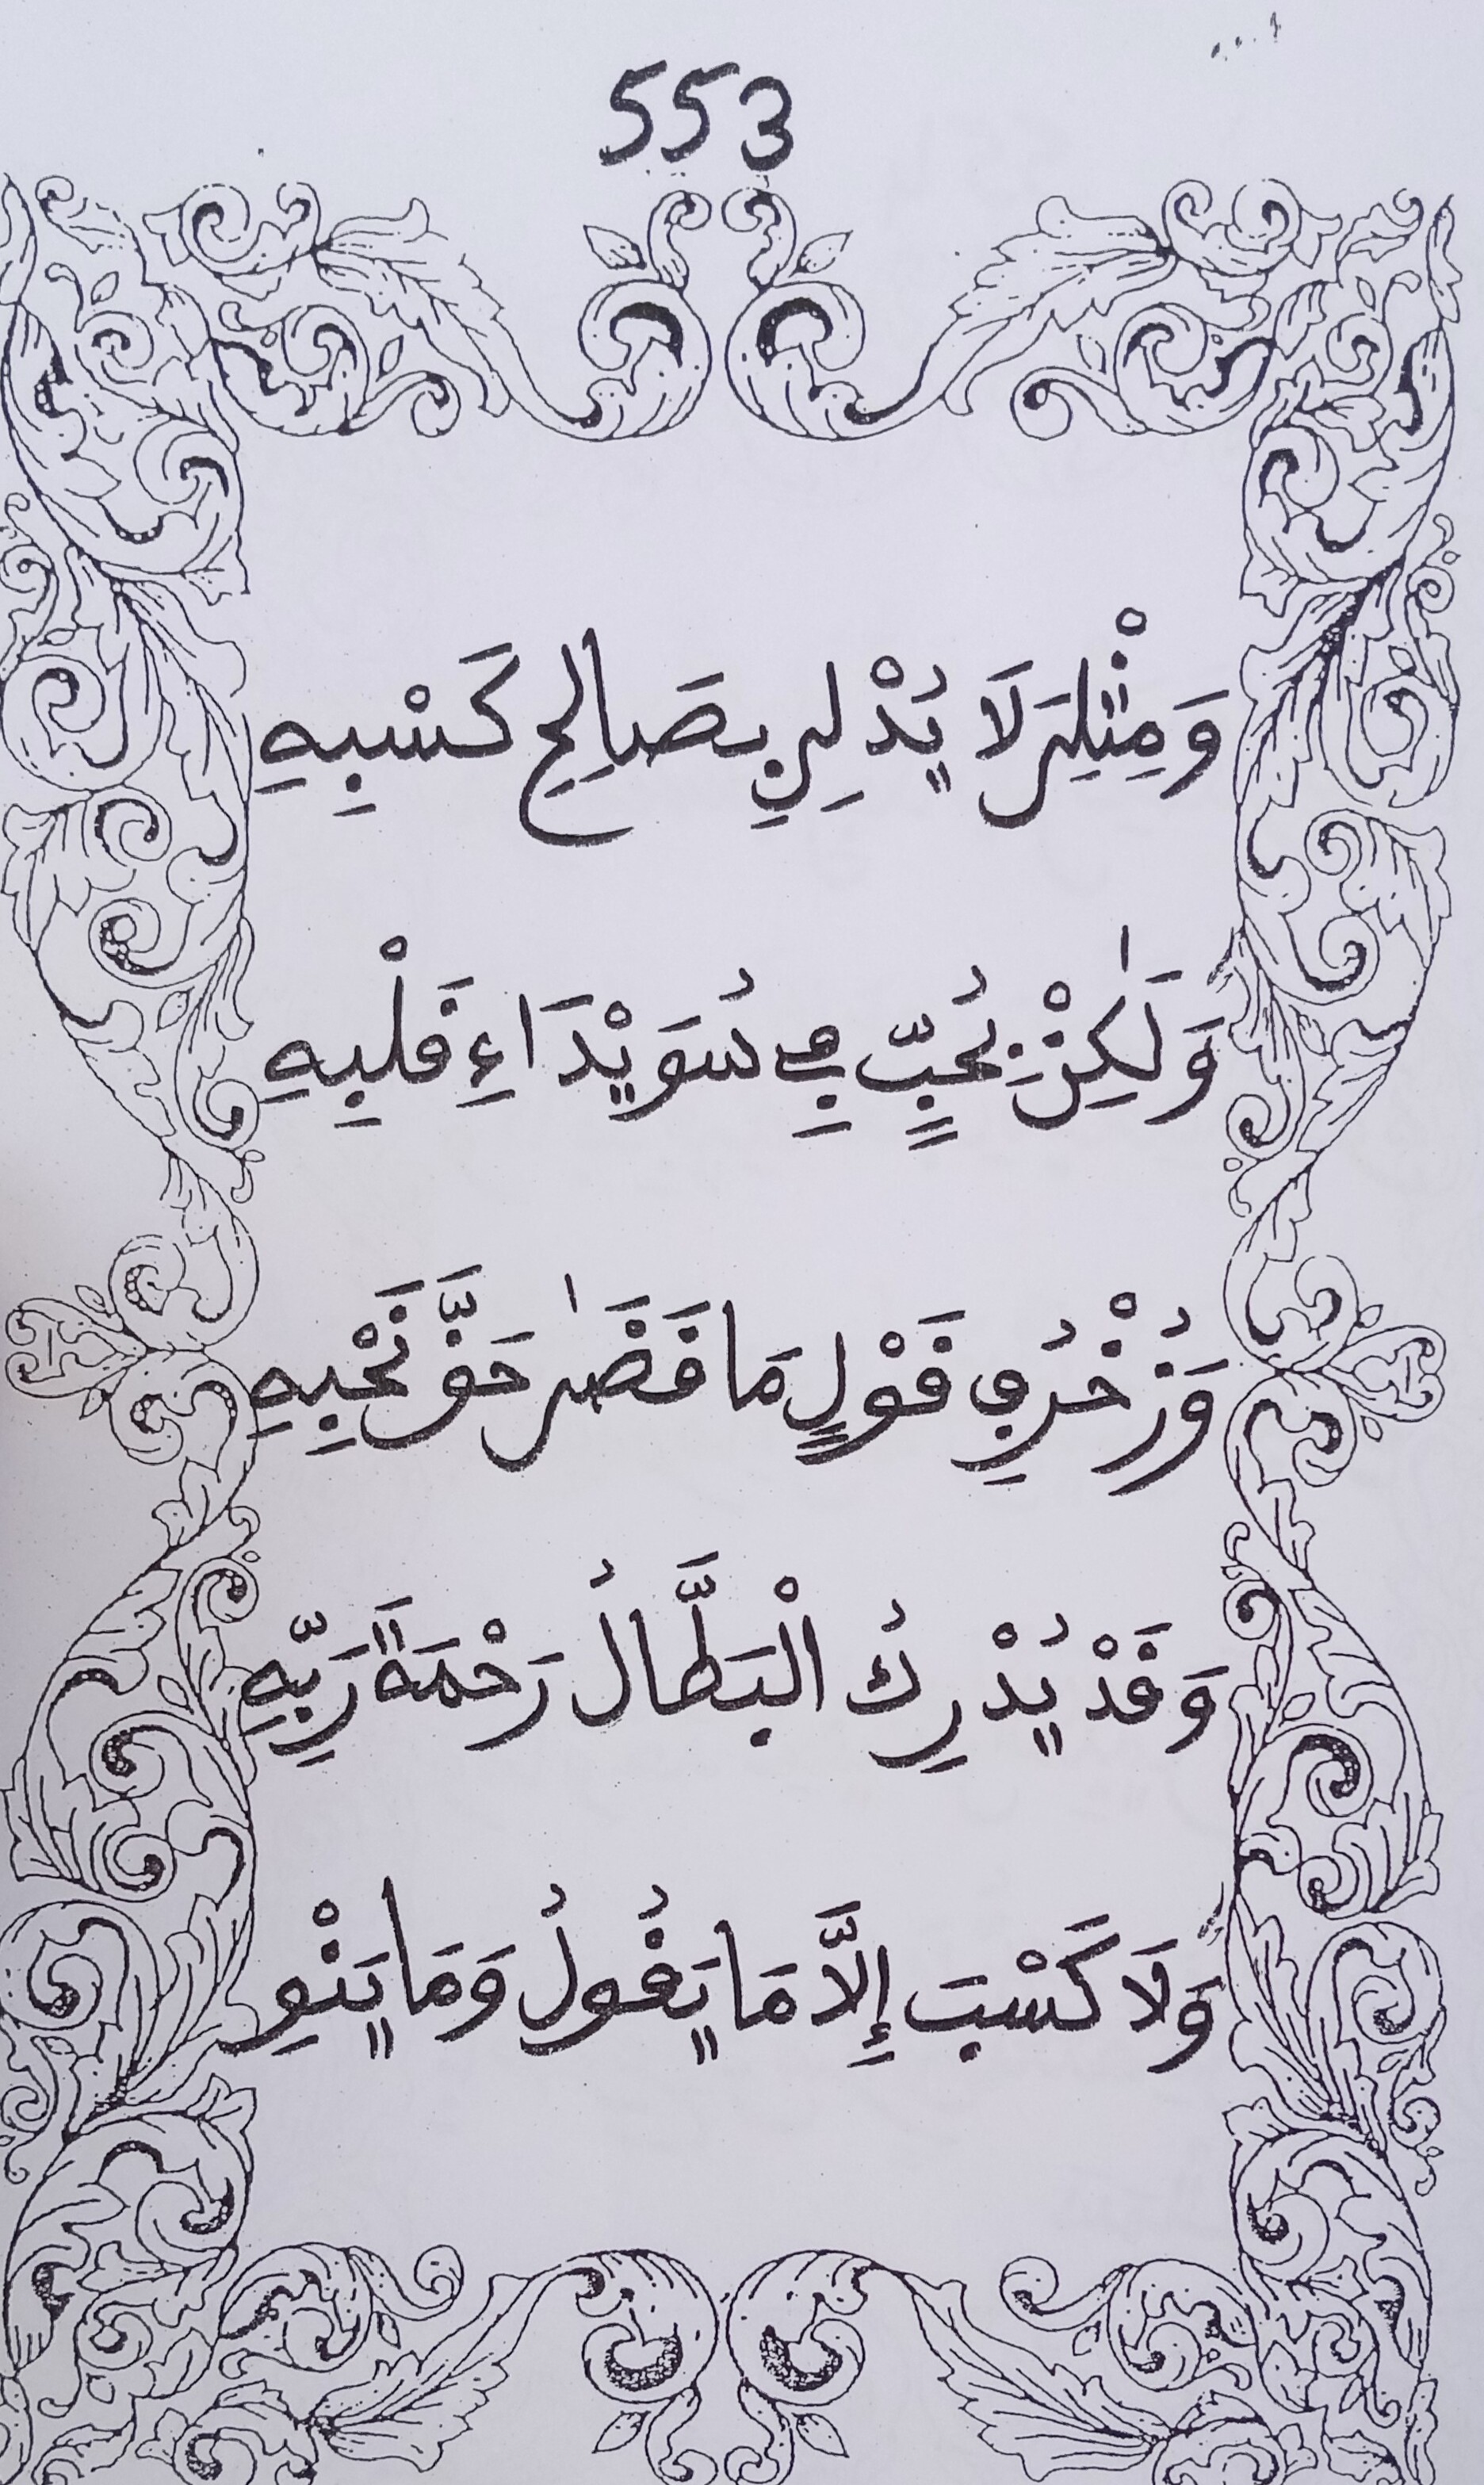 553
وَمِثْلِيَ لَا يُدْلِي بِصَالِحِ كَسْبِهِ
وَلَٰكِنْ بِحُبٍّ فِي سُوَيْدَاءِ قَلْبِهِ
وَزُخْرُفِ قَوْلٍ مَا قَضَىٰ حَقَّ نَحْبِهِ
وَقَدْ يُدْرِكُ الْبَطَّالُ رَحْمَةَ رَبِّهِ
وَلَا كَسْبَ إِلَّا مَا يَقُولُ وَمَا يَنْوِ